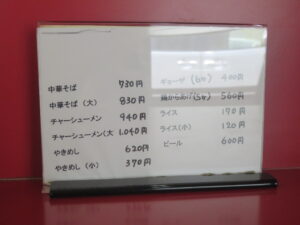 中華そば 730円
中華そば（大） 830円
チャーシューメン 940円
チャーシューメン(大 1,040円
やきめし 620円
やきめし（小） 370円
ギョーザ (6ケ) 400円
鶏からあげ(5ケ) 560円
ライス 170円
ライス(小) 120円
ビール 600円